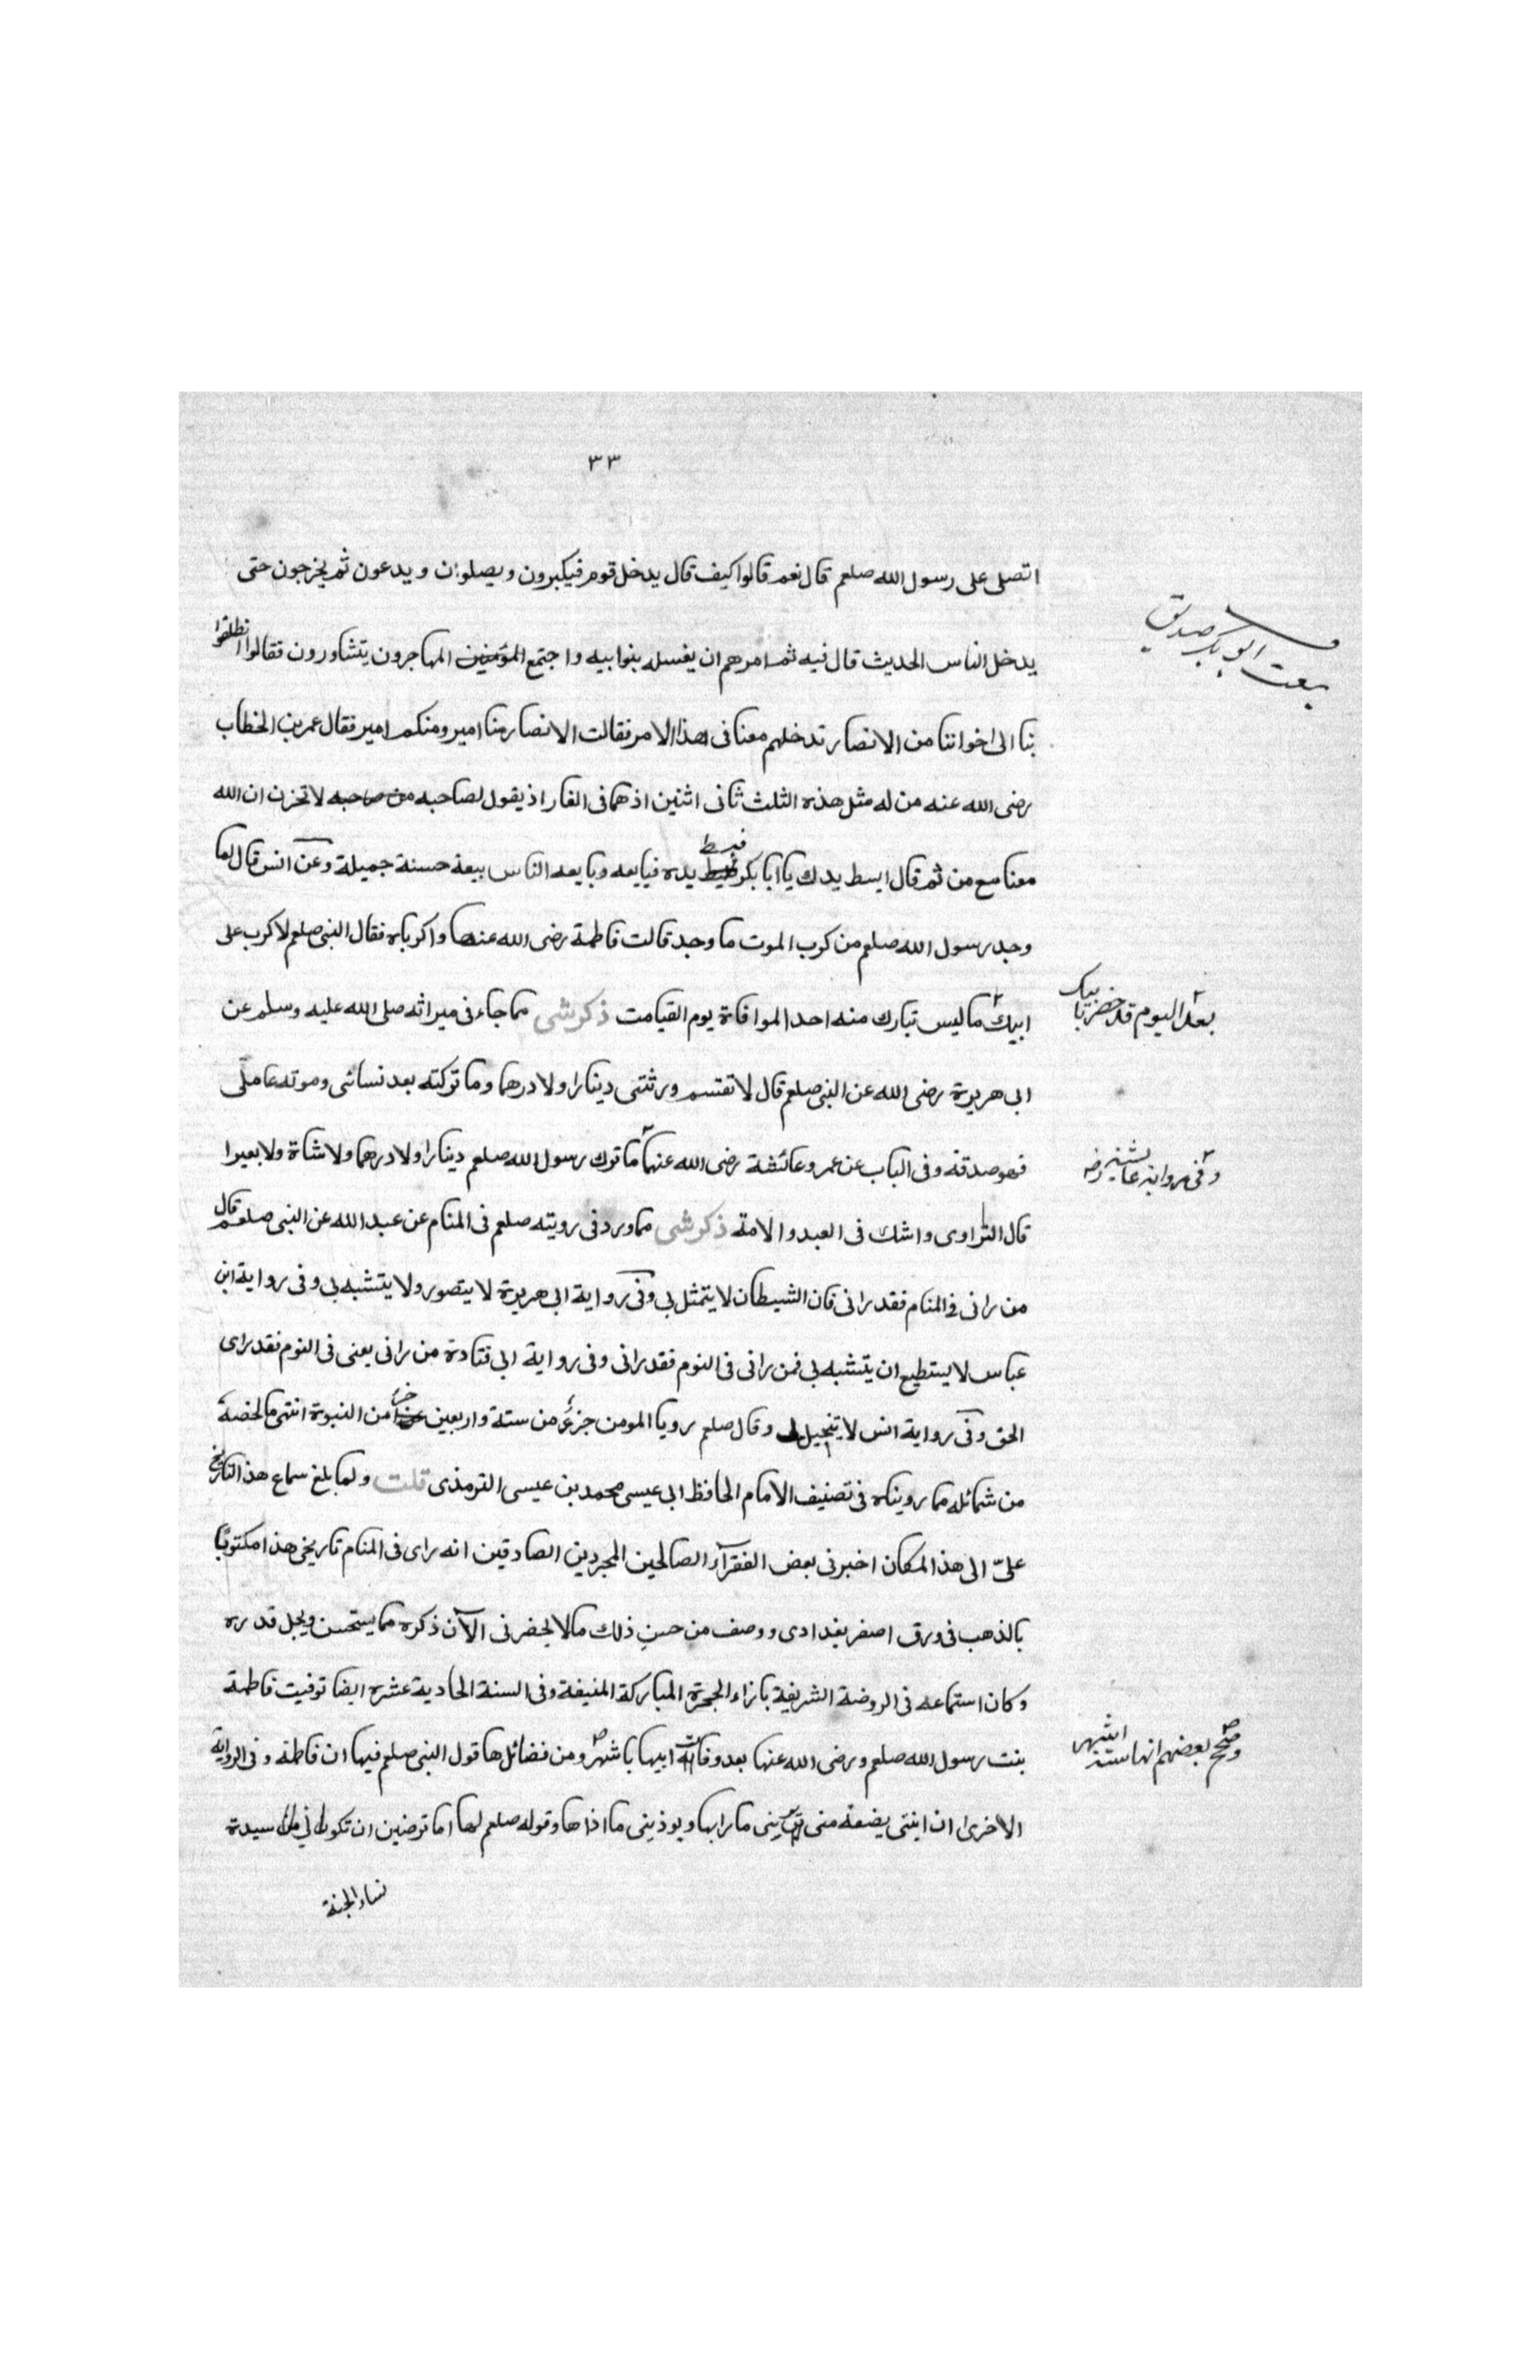 ٣٣
اتصلى على رسول الله صلعم قال نعم قالوا كيف قال يدخل قوم فيكبرون ويصلون ويدعون ثم يخرجون حتى
يدخل الناس الحديث قال فيه ثم امرهم ان يغسله بنوا بيه واجتمع المؤمنين المهاجرون يتشاورون فقالوا انطلقوا
بيعت ابو بكر صديق
بنا الى اخواننا من الانصار تدخلهم معنا فى هذا الامر فقالت الانصار منا امير ومنكم امير فقال عمر بن الخطاب
رضى الله عنه من له مثل هذه الثلث ثانى اثنين اذ هما فى الغار اذ يقول لصاحبه من صاحبه لا تحزن ان الله
معنا مع من ثم قال ابسط يدك يا ابا بكر فبسط يده فبايعه وبايعه الناس بيعة حسنة جميلة وعن انس قال لما
وجد رسول الله صلعم من كرب الموت ما وجد قالت فاطمة رضى الله عنها واكرباه فقال النبى صلعم لا كرب على
ابيك ما ليس تبارك منه احد الموافاة يوم القيامت ذكر شى مما جاء فى ميراثه صلى الله عليه وسلم عن
بعد اليوم قد حضر بابيك
ابى هريرة رضى الله عن النبى صلعم قال لا تقتسم ورثتى دينارا ولا درهما وما تركته بعد نسائى وموته عاملى
فهو صدقه وفى الباب عن عمر وعائشة رضى الله عنهما ما ترك رسول الله صلعم دينارا ولا درهما ولا شاة ولا بعيرا
وفى رواية عايشه رض
قال الراوى واشك فى العبد والامة ذكر شى مما ورد فى رويته صلعم فى المنام عن عبد الله عن النبى صلعم قال
من رانى فى المنام فقد رانى فان الشيطان لا يتمثل بى وفى رواية ابى هريرة لا يتصور ولا يتشبه بى وفى رواية ابن
عباس لا يستطيع ان يتشبه بى فمن رانى فى النوم فقد رانى وفى رواية ابى قتادة من رانى يعنى فى النوم فقد راى
الحق وفى رواية انس لا يتخيل بى وقال صلعم رويا المومن جزء من ستة واربعين جزأ من النبوة انتهى ما لخصة
من شمائله مما رويناه فى تصنيف الامام الحافظ ابى عيسى محمد بن عيسى الترمذى قلت ولما بلغ سماع هذ التاريخ
علىّ الى هذ المكان اخبرنى بعض الفقرآء الصالحين المجردين الصادقين انه راى فى المنام تاريخى هذا مكتوبًا
بالذهب فى ورق اصفر بغدادى ووصف من حسن ذلك ما لا يحضرنى الآن ذكره مما يستحسن ويجل قدره
وكان استماعه فى الروضة الشريفة بازاء الحجرة المباركة المنيفة وفى السنة الحادية عشره ايضا توفيت فاطمة
بنت رسول الله صلعم ورضى الله عنها بعد وفات ابيها باشهر ومن فضائلها قول النبى صلعم فيها ان فاطمة وفى الرواية
وصحح بعضهم انها ستة اشهر
الاخرى ان ابنتى بضعة منى يريبنى ما رابها ويوذينى ما اذاها وقوله صلعم لها اما ترضين ان تكونى سيدة
نساء الجنة